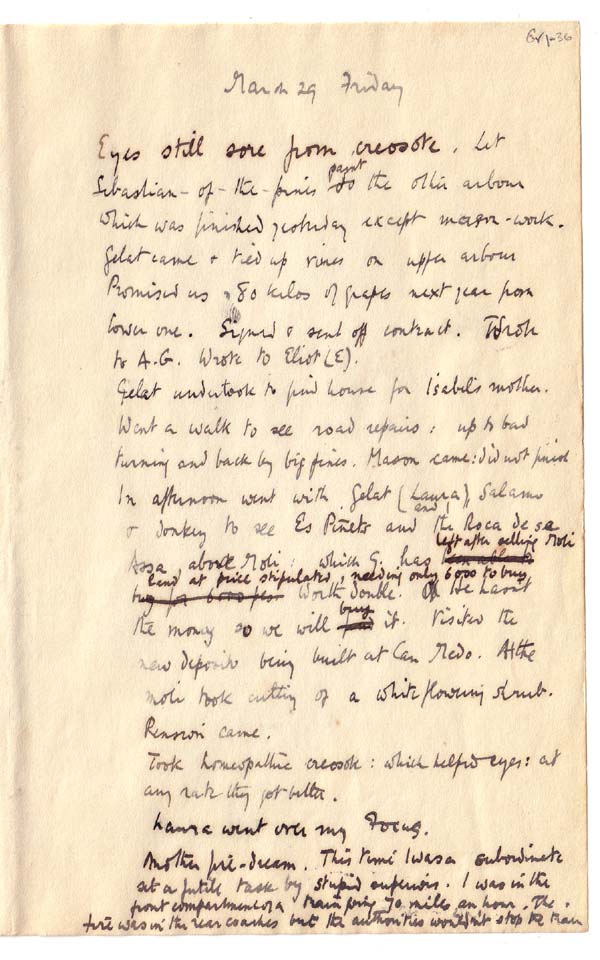 March 29 Friday
Eyes still sore from creosote. Let
paint
Sebastian-of-the-pines do the other arbour
which was finished yesterday except mason-work.
Gelat came & tied up vines on upper arbour
Promised us 80 kilos of grapes next year from
lower one. Signed & sent off contract. Wrote
to A.G. Wrote to Eliot (E).
Gelat undertook to find house for Isabel's mother.
Went a walk to see road repairs: up to bad
turning and back by big pines. Mason came: did not finish
In afternoon went with Gelat (Laura), Salamo
and
& donkey to see Es Pinets and the Roca de sa
left after selling Moli
Assa above Moli: which G. has been able to
land at price stipulated, needing only 6000 to buy
buy for 6000 pesr Worth double. He hasn't
buy
the money so we will it. Visited the
new deposito being built at Can Medo. At the
moli took cutting of a white flowering shrub.
Pension came.
Took homeopathic creosote: which helped eyes: at
any rate they got better.
Laura went over my Focus.
Another fire-dream. This time I was a subordinate
set a futile task by stupid superiors. I was in the
front compartment of a train going 70 miles an hour. The
fire was in the rear coaches but the authorities wouldn't stop the train